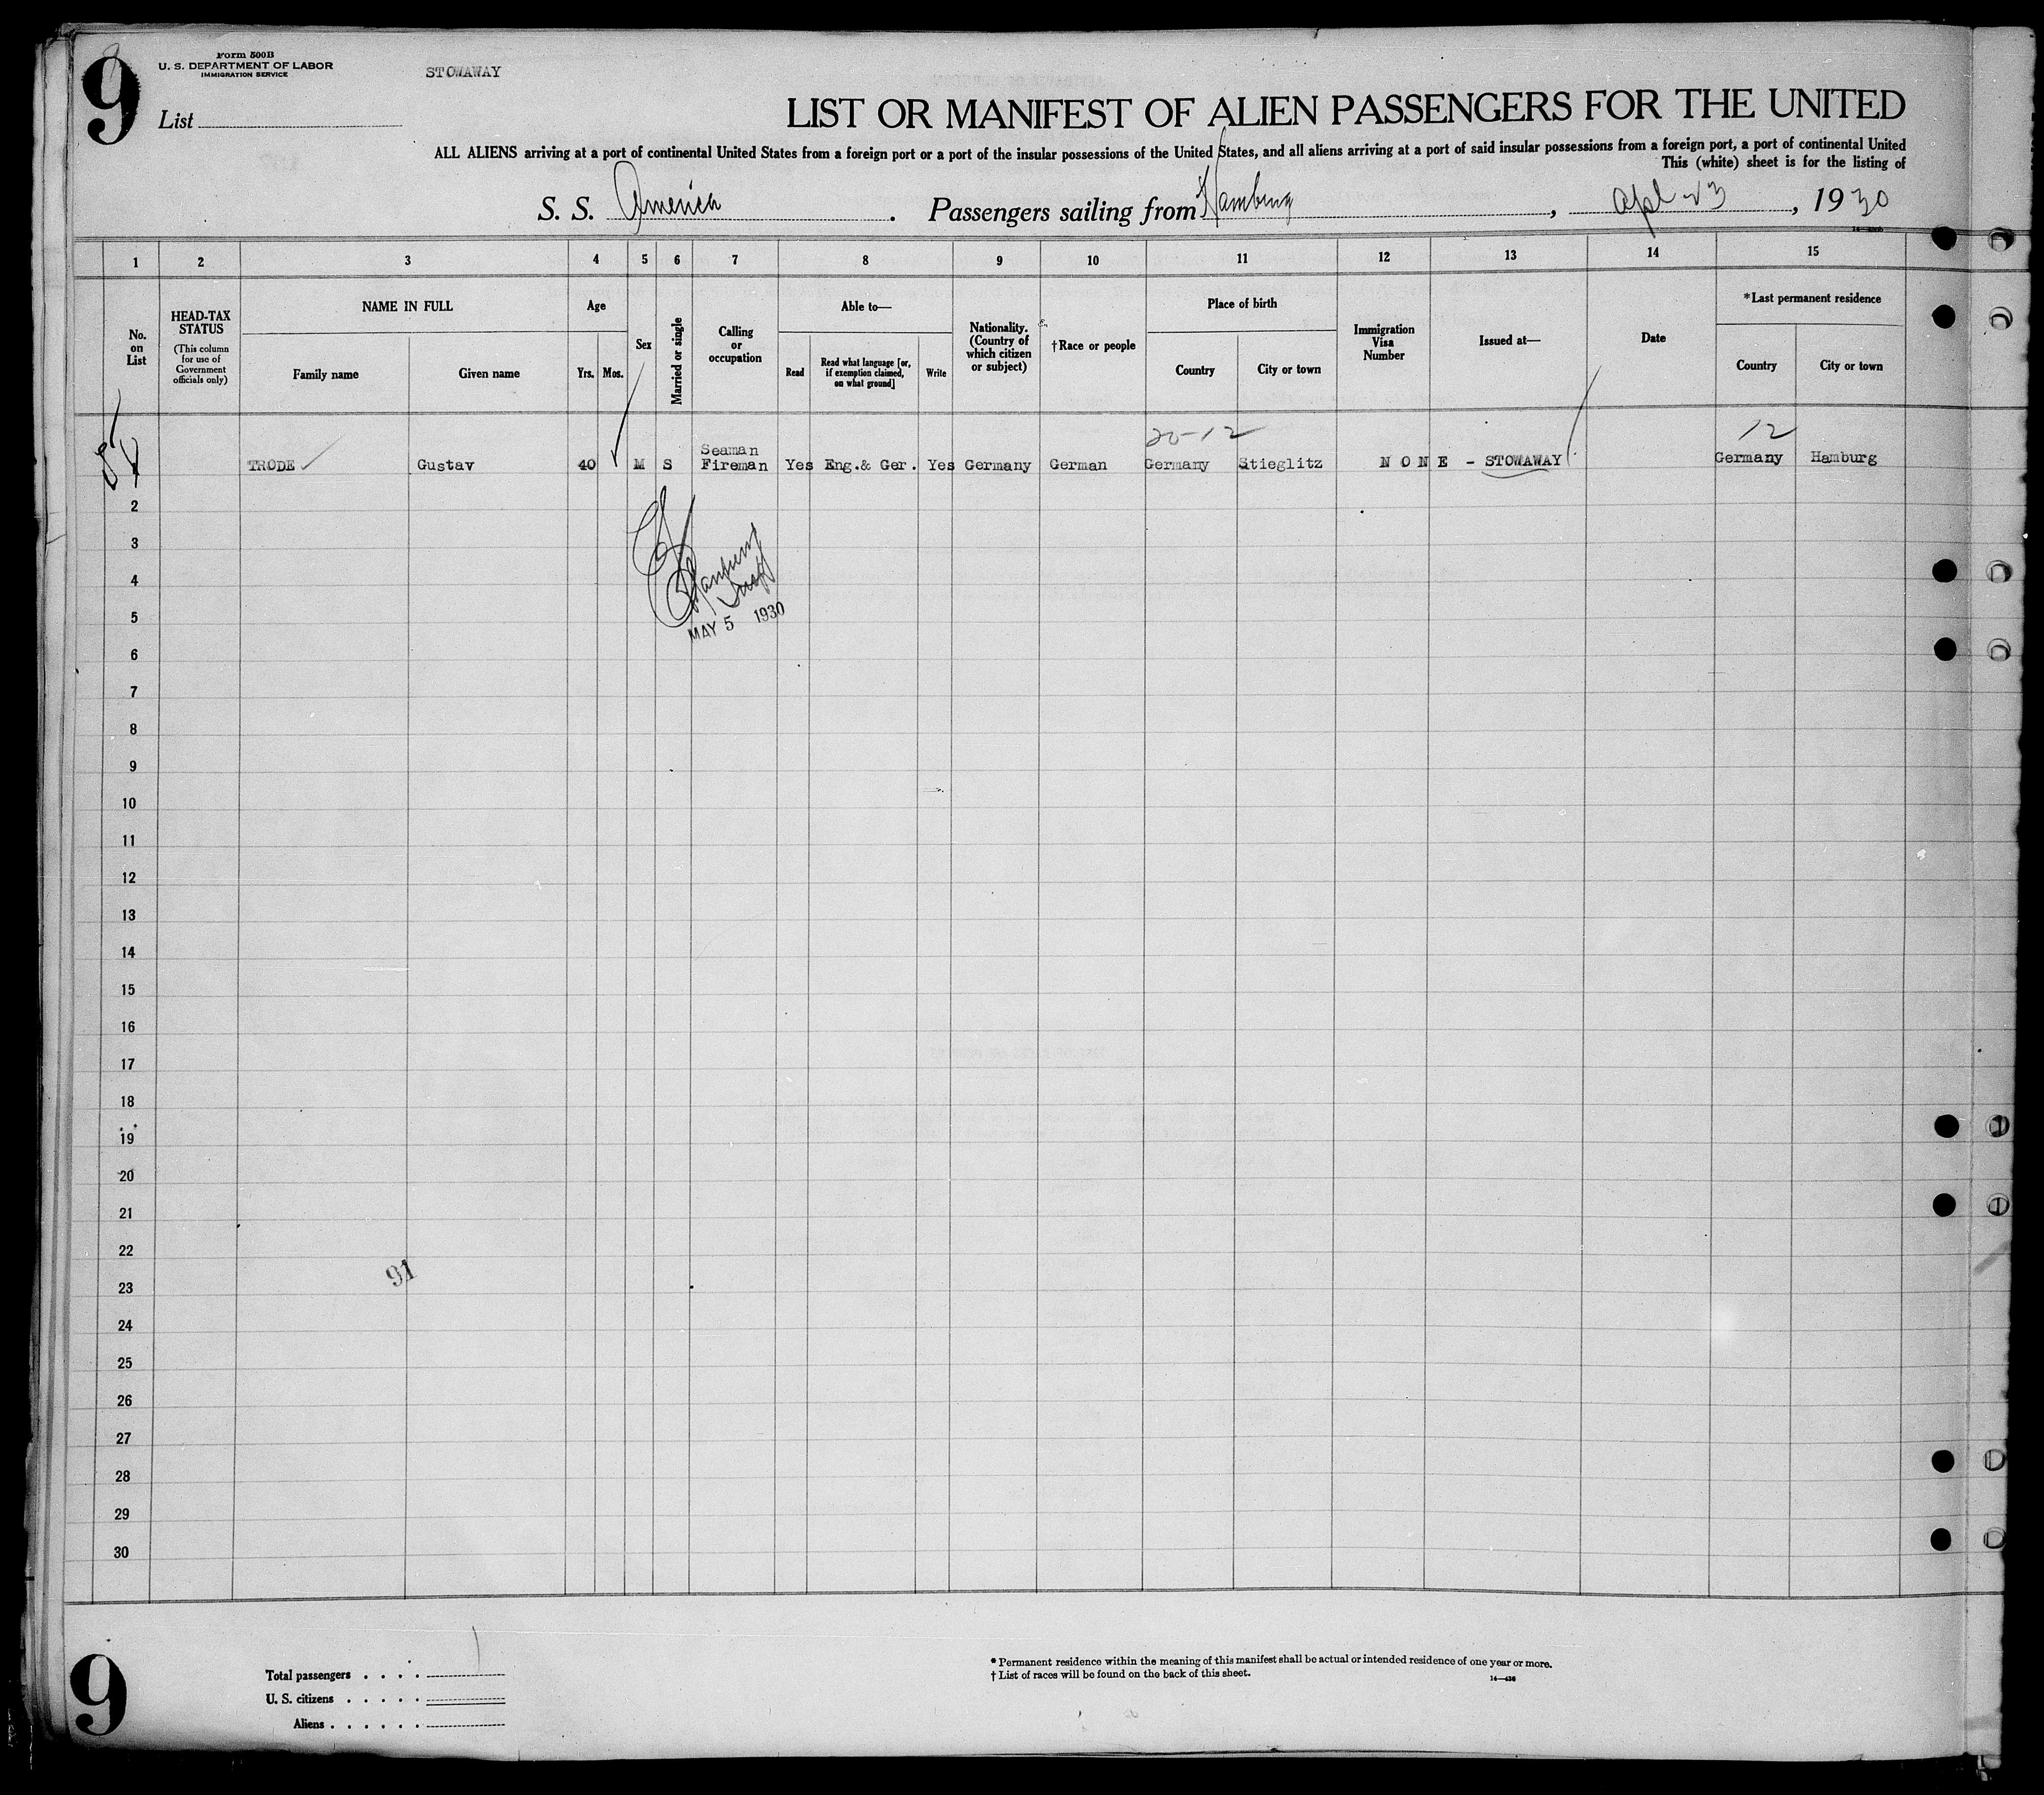 9
Form 500B
U. S. DEPARTMENT OF LABOR
IMMIGRATION SERVICE
STOWAWAY
List
LIST OR MANIFEST OF ALIEN PASSENGERS FOR THE UNITED
ALL ALIENS arriving at a port of continental United States from a foreign port or a port of the insular possessions of the United States, and all aliens arriving at a port of said insular possessions from a foreign port, a port of continental United
This (white) sheet is for the listing of
S. S. America. Passengers sailing from Hamburg, Apl 23, 1930
1 2 3 4 5 6 7 8 9 10 11 12 13 14 15
No. on List
HEAD-TAX STATUS
(This column for use of Government officials only)
NAME IN FULL
Family name Given name
Age
Yrs. Mos.
Sex
Married or single
Calling or occupation
Able to—
Read
Read what language [or, if exemption claimed, on what ground]
Write
Nationality. (Country of which citizen or subject)
†Race or people
Place of birth
Country City or town
Immigration Visa Number
Issued at—
Date
*Last permanent residence
Country City or town
20-12 12
TRODE Gustav 40 M S Seaman Fireman Yes Eng.& Ger. Yes Germany German Germany Stieglitz NONE - STOWAWAY Germany Hamburg
2
3
4
5
MAY 5 1930
6
7
8
9
10
11
12
13
14
15
16
17
18
19
20
21
22
91
23
24
25
26
27
28
29
30
9
Total passengers . . . . 1
U. S. citizens . . . . .
Aliens . . . . . .
* Permanent residence within the meaning of this manifest shall be actual or intended residence of one year or more.
† List of races will be found on the back of this sheet.
14—436